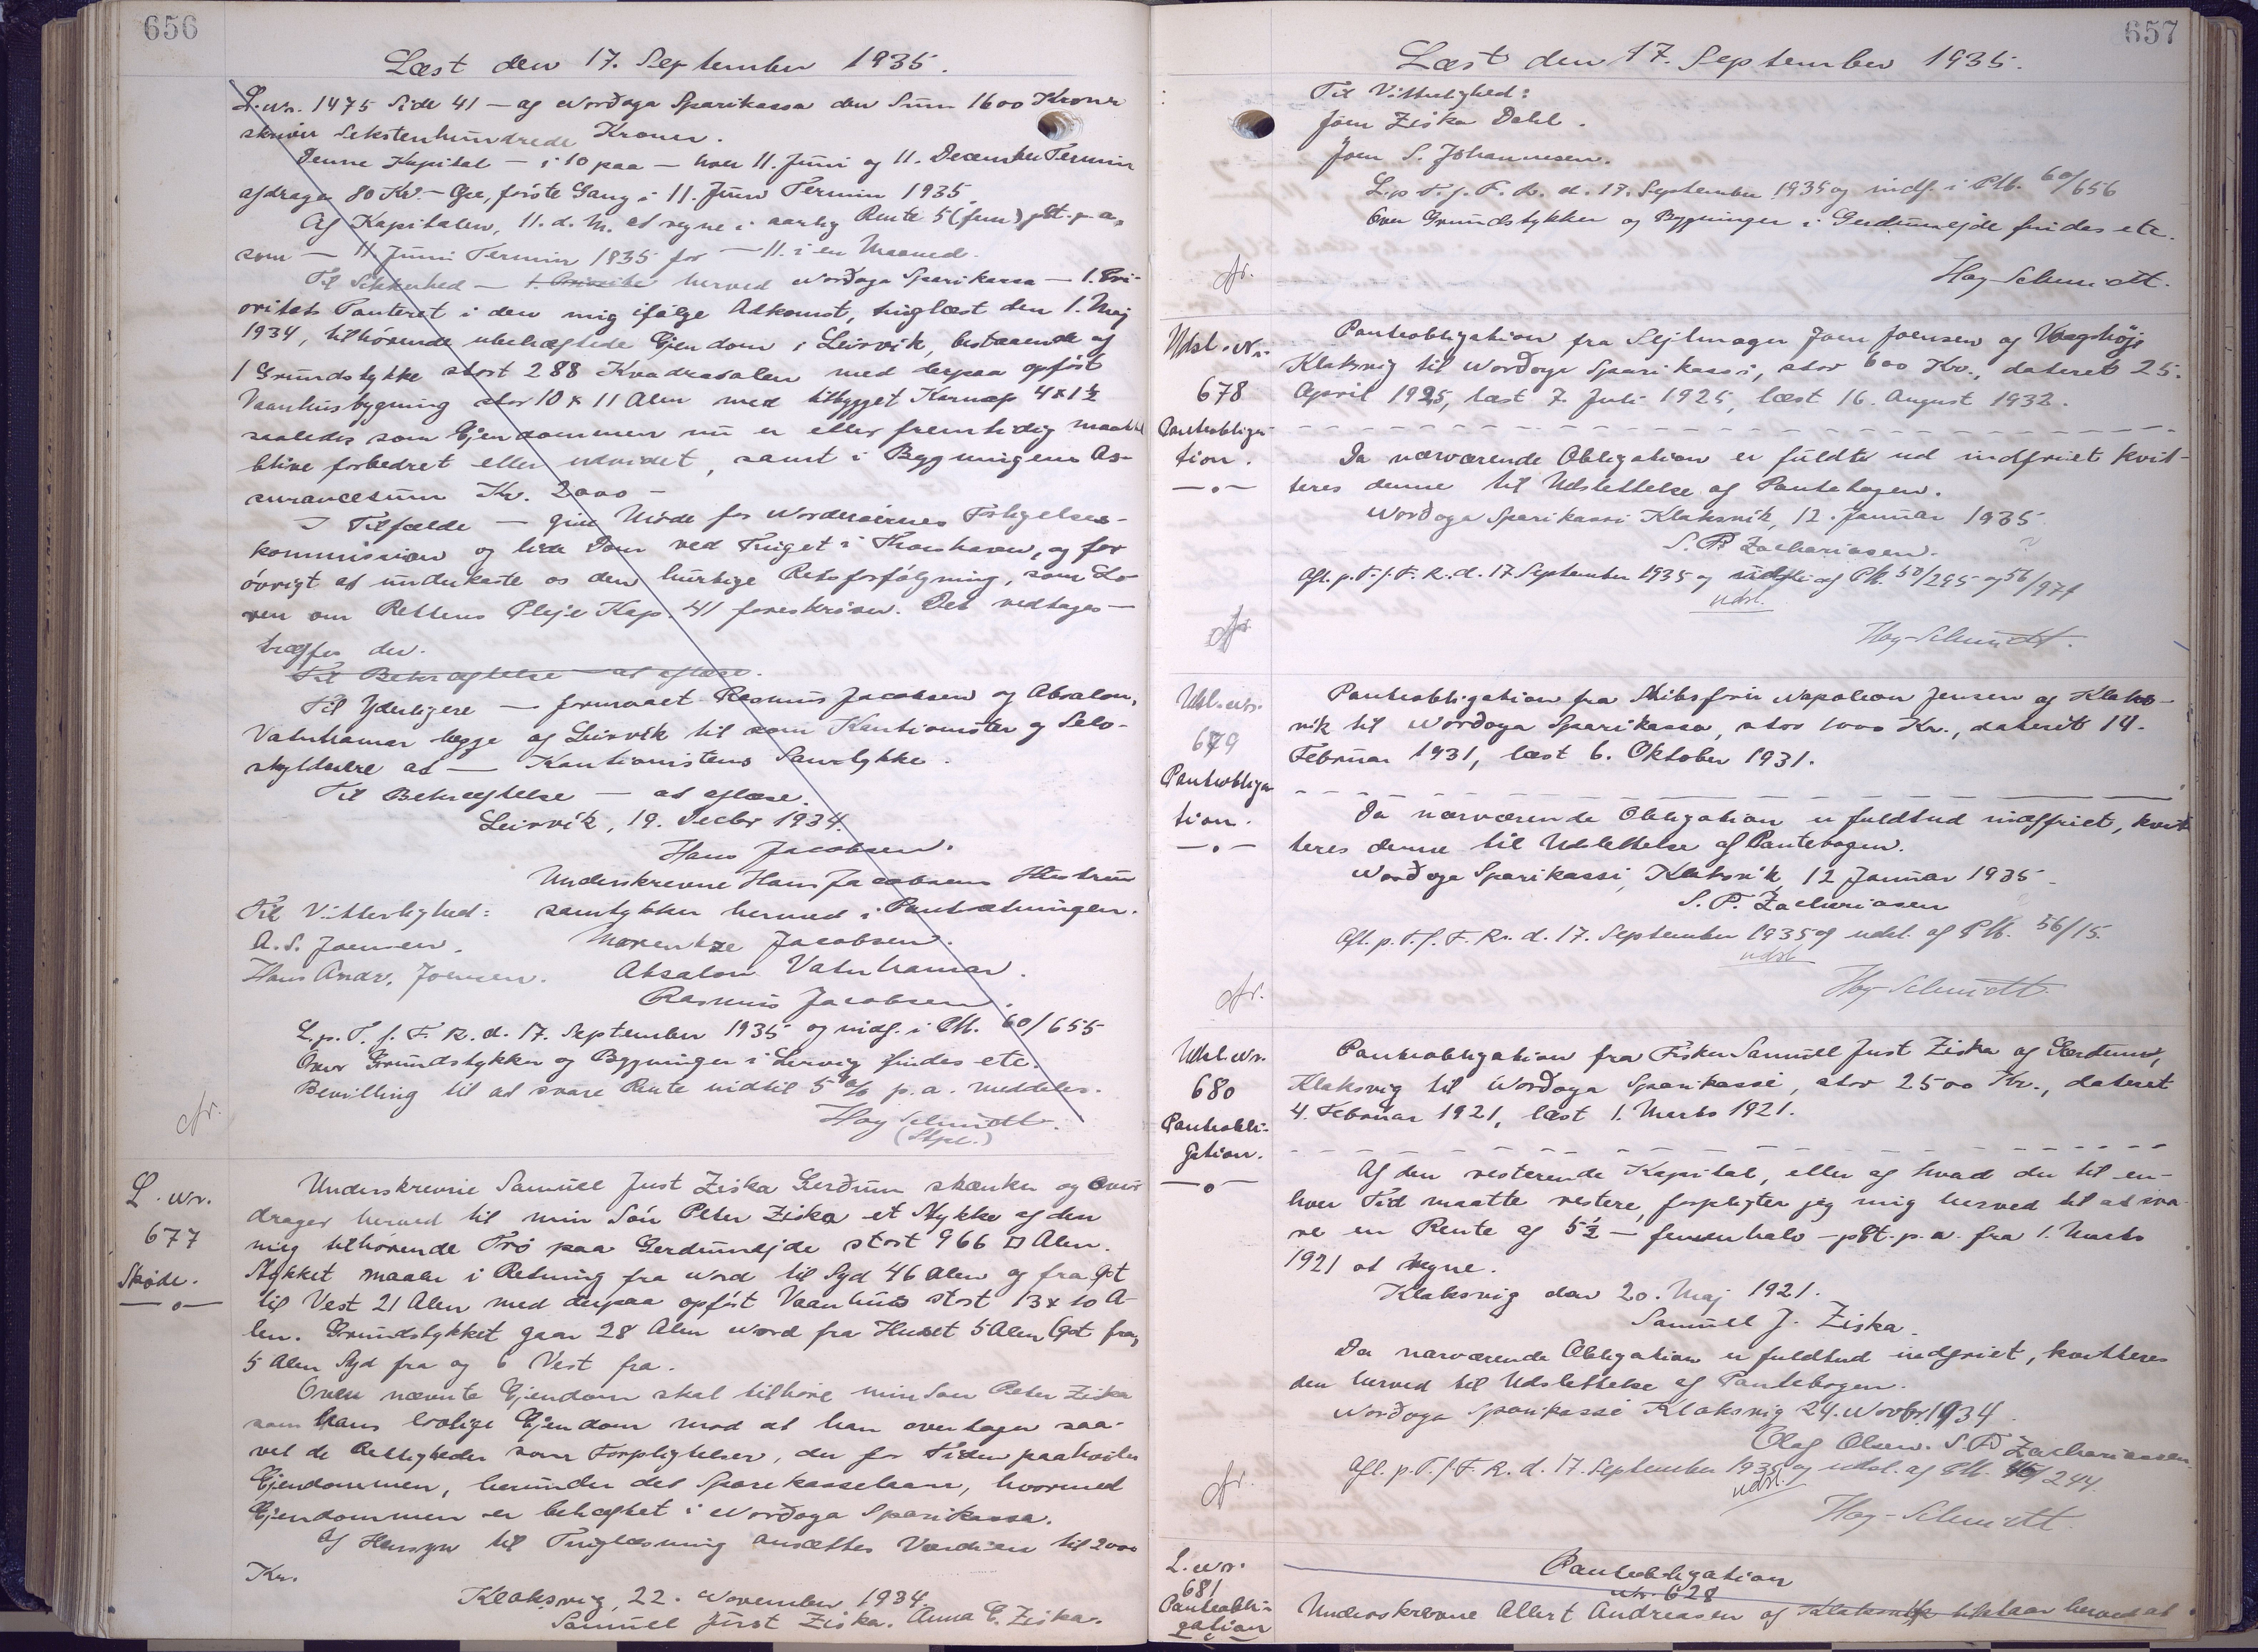 656
Læst den 17. September 1935.
L. nr. 1475 Side 41 — af Norðoya Sparikassa den Sum 1600 Kroner
skriver Sekstenhundrede Kroner.
Denne Kapital — i 10 paa — hver 11. Juni og 11. December Termin
afdrages 80 Kr. — Øre, første Gang i 11. Juni Termin 1935.
Af Kapitalen, 11. d. M. at regne i aarlig Rente 5 (fem) pCt. p. a.
som — 11. Juni Termin 1935 for — 11. i en Maaned.
Til Sikkerhed — herved Norðoya Sparikassa — 1. Pri-
oritets Panteret i den mig ifølge Adkomst, tinglæst den 1. Maj
1934, tilhørende ubehæftede Ejendom i Leirvik, bestaaende af
1 Grundstykke stort 288 Kvadratalen med derpaa opført
Vaanhusbygning stor 10 x 11 Alen med tilbygget Karnap 4 x 1½
saaledes som Ejendommen nu er eller fremtidig maatte
blive forbedret eller udvidet, samt i Bygningens As-
surancesum Kr. 2000 —
I Tilfælde — give Møde for Norderøernes Forligelses-
kommission og lide Dom ved Tinget i Thorshavn, og for
øvrigt at underkaste os den hurtige Retsforfølgning, som Lo-
ven om Rettens Pleje Kap. 41 foreskriver. Det vedtages —
træffes der.
Til Bekræftelse — at aflæse.
Til Yderligere — formaaet Rasmus Jacobsen og Absalon
Vatnhamar begge af Leirvik til som Kautionister og Selv-
skyldnere at — Kautionistens Samtykke.
Til Bekræftelse — at aflæse.
Leirvik, 19. Decbr 1934.
Hans Jacobsen.
Underskrevne Hans Jacobsens Hustru
Til Vitterlighed: samtykker hermed i Pantsætningen.
A. S. Joensen. Morentze Jacobsen.
Hans Andr. Joensen. Absalon Vatnhamar.
Rasmus Jacobsen.
L. p. T. f. F. R. d. 17. September 1935 og indf. i Pb. 60/655
Over Grundstykker og Bygninger i Lervig findes etc.
Bevilling til at svare Rente indtil 5 % p. a. meddeles.
Hoy-Schmidt.
(Stpl.)
L. nr.
677
Skøde.
Underskrevne Samuel Just Ziska Gerðum skænker og over
drager herved til min Søn Peter Ziska et Stykke af den
mig tilhørende Trø paa Gerdumejde stort 966 □ Alen.
Stykket maaler i Retning fra Nord til Syd 46 Alen og fra Øst
til Vest 21 Alen med derpaa opført Vaanhus stort 13 x 10 A-
len. Grundstykket gaar 28 Alen Nord fra Huset 5 Alen Øst fra,
5 Alen Syd fra og 6 Vest fra.
Oven nævnte Ejendom skal tilhøre min Søn Peter Ziska
som hans lovlige Ejendom mod at han overtager saa-
vel de Rettigheder som Forpligtelser, der for Tiden paahviler
Ejendommen, herunder det Sparekasselaan, hvormed
Ejendommen er behæftet i Norðoya Sparikassa.
Af Hensyn til Tinglæsning ansættes Værdien til 2000
Kr.
Klaksvig, 22. November 1934.
Samuel Just Ziska. Anna E. Ziska.
657
Læst den 17. September 1935.
Til Vitterlighed:
Joen Ziska Dahl.
Joen S. Johannesen.
L. p. T. f. F. R. d. 17. September 1935 og indf. i Pb. 60/656
Over Grundstykker og Bygninger i Gerdumejde findes etc.
Hoy-Schmidt.
Udsl. Nr.
678
Panteobliga-
tion.
Panteobligation fra Sejlmager Joen Joensen af Vaagshøj
Klaksvig til Norðoya Sparikassi, stor 600 Kr., dateret 25.
April 1925, læst 7. Juli 1925, læst 16. August 1932.
Da nærværende Obligation er fuldt ud indfriet kvit-
teres denne til Udslettelse af Pantebogen.
Norðoya Sparikassi Klaksvik, 12. Januar 1935
S. P. Zachariasen.
Afl. p. T. f. F. R. d. 17. September 1935 og af Pb. 50/295 og 56/974
udsl.
Hoy-Schmidt.
Udsl. nr.
679
Panteobliga
tion.
Panteobligation fra Skibsfører Napoleon Jensen af Klaks-
vik til Norðoya Sparikassa, stor 1000 Kr., dateret 14.
Februar 1931, læst 6. Oktober 1931.
Da nærværende Obligation er fuldtud indfriet, kvit
teres denne til Udslettelse af Pantebogen.
Norðoya Sparikassi, Klaksvik, 12 Januar 1935
S. P. Zachariasen
Afl. p. T. f. F. R. d. 17. September 1935 og udsl. af Pb. 56/15.
udsl.
Hoy-Schmidt.
Udsl. nr.
680
Panteobli-
gation.
Panteobligation fra Fisker Samuell Just Ziska af Gerdum,
Klaksvig til Norðoya Sparikassi, stor 2500 Kr., dateret
4. Februar 1921, læst 1. Marts 1921.
Af den resterende Kapital, eller af hvad der til en-
hver Tid maatte restere, forpligter jeg mig herved til at sva-
re en Rente af 5½ — femenhalv — pCt. p. a. fra 1. Marts
1921 at regne.
Klaksvig den 20. Maj 1921.
Samuell J. Ziska.
Da nærværende Obligation er fuldtud indfriet, kvitteres
den herved til Udslettelse af Pantebogen.
Norðoya Sparikassi Klaksvig 24. Novbr. 1934.
Olaf Olsen. S. P. Zachariasen.
Afl. p. T. f. F. R. d. 17. September 1935 og udsl. af Pb. 45/244.
udsl.
Hoy-Schmidt.
L. nr.
681
Panteobli-
gation
Panteobligation
nr. 628
Underskrevne Allert Andreasen af Klaksvik tilstaar herved at